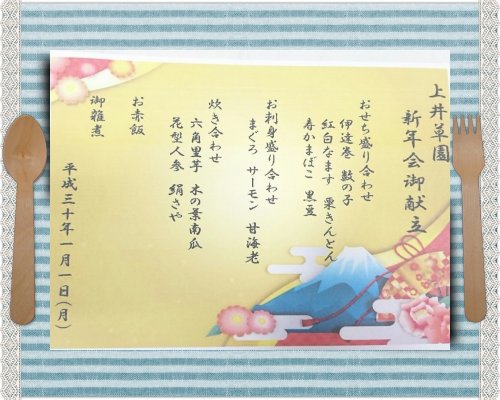 上井草園
新年会御献立
おせち盛り合わせ
伊達巻 数の子
紅白なます 栗きんとん
春かまぼこ 黒豆
お刺身盛り合わせ
まぐろ サーモン 甘海老
炊き合わせ
六角里芋 木の葉南瓜
花型人参 絹さや
お赤飯
御雑煮
平成三十年一月一日(月)